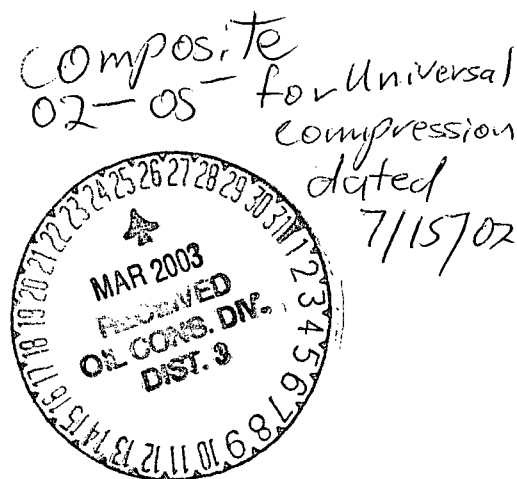 Composite
02-05 for Universal
compression
dated
7/15/02
1 2 3 4 5 6 7 8 9 10 11 12 13 14 15 16 17 18 19 20 21 22 23 24 25 26 27 28 29 30 31
MAR 2003
RECEIVED
OIL CONS. DIV.
DIST. 3